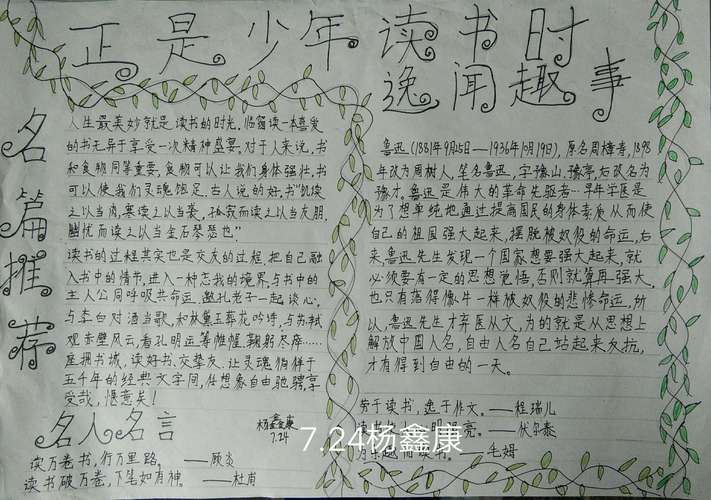 正是少年读书时
名篇推荐
人生最美妙就是读书的时光，临窗读一本喜爱
的书无异于享受一次精神盛宴，对于人来说，书
和食物同等重要，食物可以让我们身体强壮，书
可以使我们灵魂饱足。古人说的好，"饥读
之以当肉，寒读之以当裘，孤寂而读之以当友朋，
幽忧而读之以当金石琴瑟也."
读书的过程其实也是交友的过程，把自己融
入书中的情节，进入一种忘我的境界，与书中的
主人公同呼吸共命运，邀孔老子一起谈心，
与李白对酒当歌，和林黛玉葬花吟诗，与苏轼
观赤壁风云，看孔明运筹帷幄，鞠躬尽瘁……
座拥书城，读好书、交挚友，让灵魂徜徉于
五千年的经典文字间，任想象自由驰骋，享
受哉，惬意矣！
名人名言
读万卷书，行万里路。——顾炎
读书破万卷，下笔如有神。——杜甫
杨鑫康
7.24
逸闻趣事
鲁迅（1881年9月25日——1936年10月19日），原名周樟寿，1898
年改为周树人，笔名鲁迅，字豫山、豫亭，后改名为
豫才。鲁迅是伟大的革命先驱者…早年学医是
为了想单纯地通过提高国民的身体素质从而使
自己的祖国强大起来，摆脱被奴役的命运，右
来鲁迅先生发现一个国家想要强大起来，就
必须要有一定的思想觉悟，否则就算再强大，
也只有落得像牛一样被奴役的悲惨命运，所
以，鲁迅先生才弃医从文，为的就是从思想上
解放中国人名，自由人名自己站起来反抗，
才有得到自由的一天。
劳于读书，逸于作文。——程瑞儿
亮。——伏尔泰
而读书。 毛姆
7.24杨鑫康